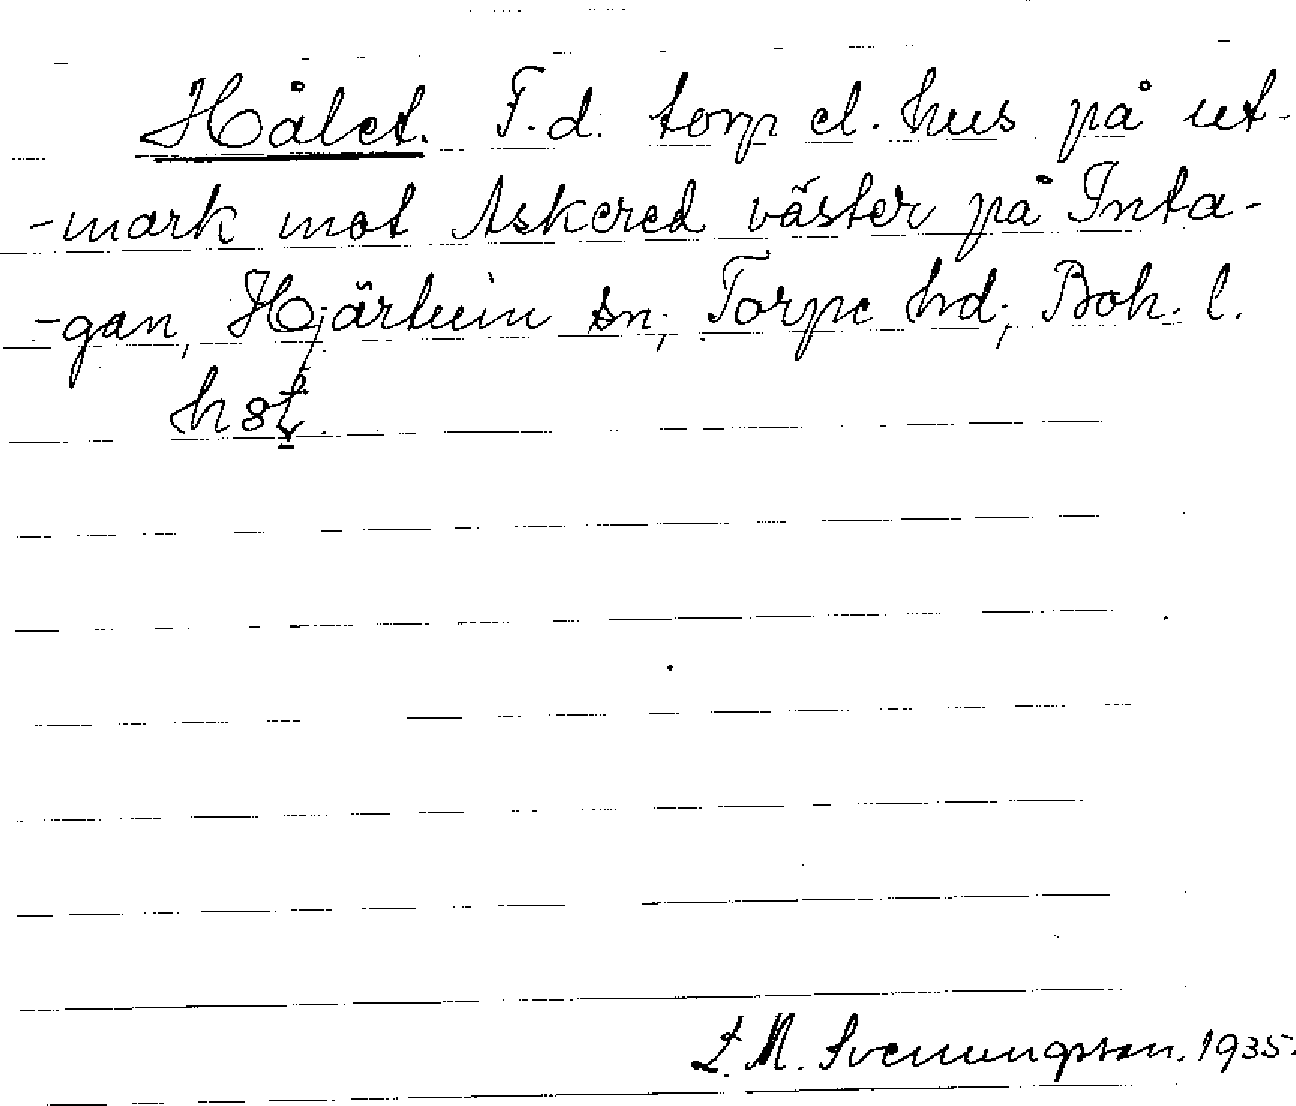 Hålet. F.d. torp el. hus på ut-
-mark mot Askered väster på Inta-
-gan, Hjärtum sn; Torpe hd; Boh. l.
L. M. Svenungsson. 1935.